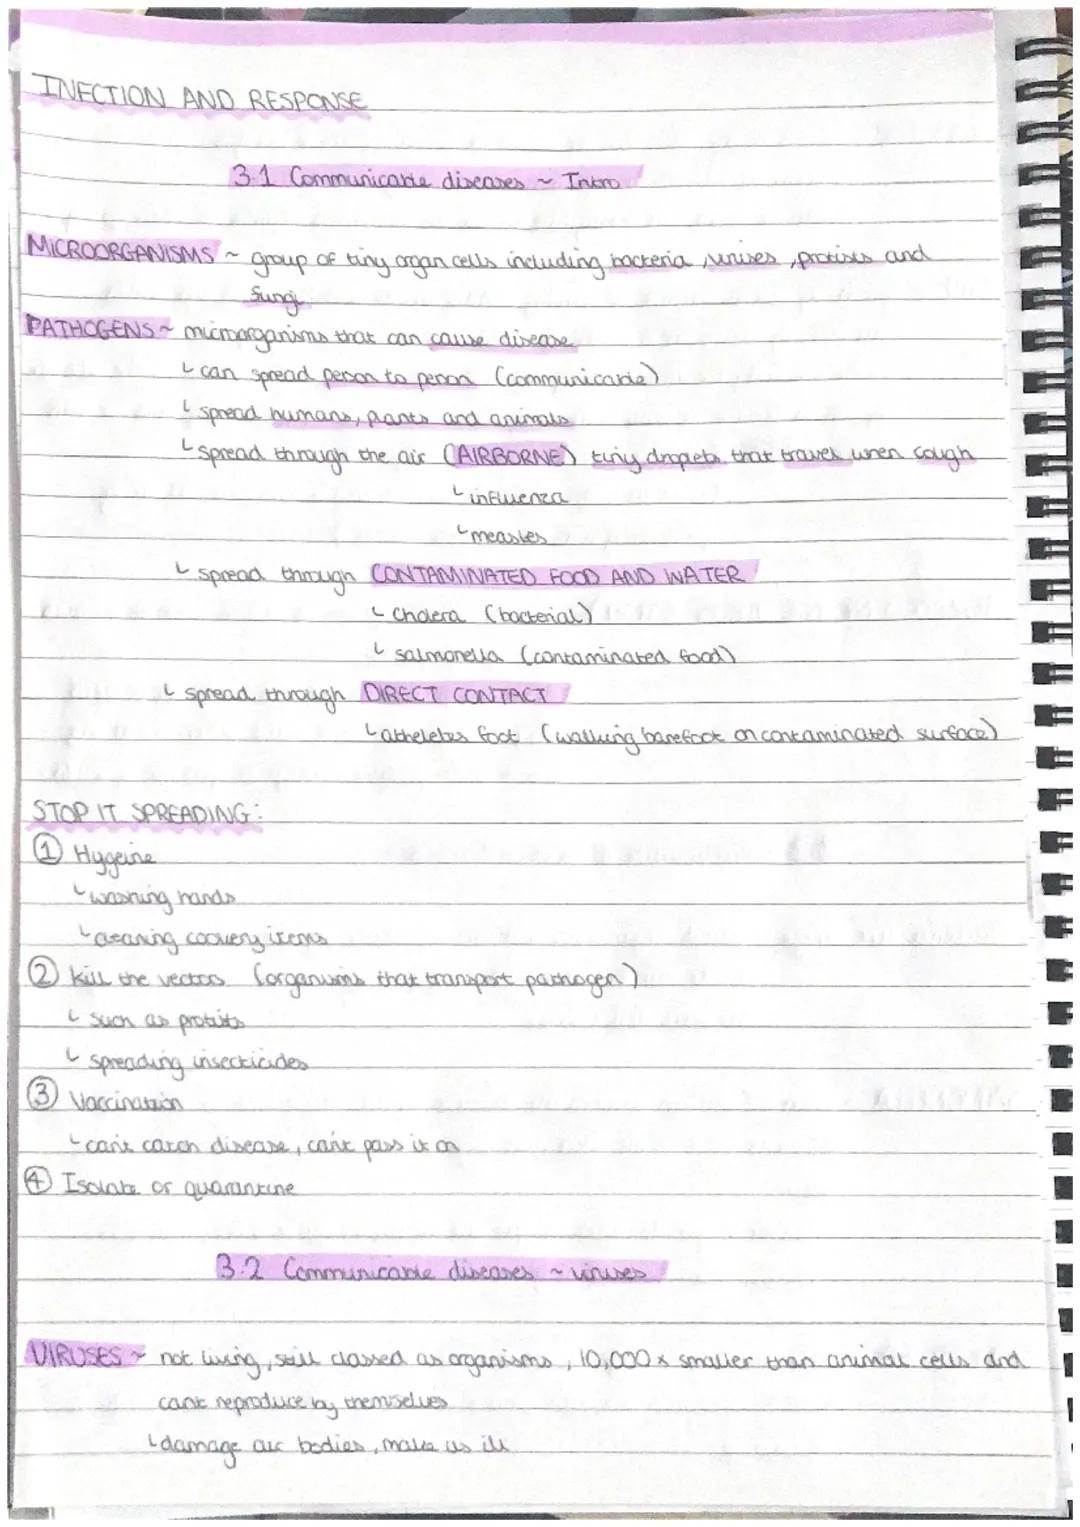 INFECTION AND RESPONSE
3.1 Communicable diseases ~ Intro
MICROORGANISMS ~ group of tiny organ cells including bacteria, viruses, protists and
fungi
PATHOGENS ~ microorganisms that can cause disease
└ can spread person to person (communicable)
└ spread humans, plants and animals
└ spread through the air (AIRBORNE) tiny droplets that travel when cough
└ influenza
└ measles
└ spread through CONTAMINATED FOOD AND WATER
└ cholera (bacterial)
└ salmonella (contaminated food)
└ spread through DIRECT CONTACT
└ atheletes foot (walking barefoot on contaminated surface)
STOP IT SPREADING:
① Hygeine
└ washing hands
└ cleaning coovery items
② Kill the vectors (organisms that transport pathogen)
└ such as protists
└ spreading insecticides
③ Vaccination
└ can't catch disease, can't pass it on
④ Isolate or quarantine
3.2 Communicable diseases ~ viruses
VIRUSES ~ not living, still classed as organisms, 10,000x smaller than animal cells and
cant reproduce by themselves
└ damage our bodies, make us ill